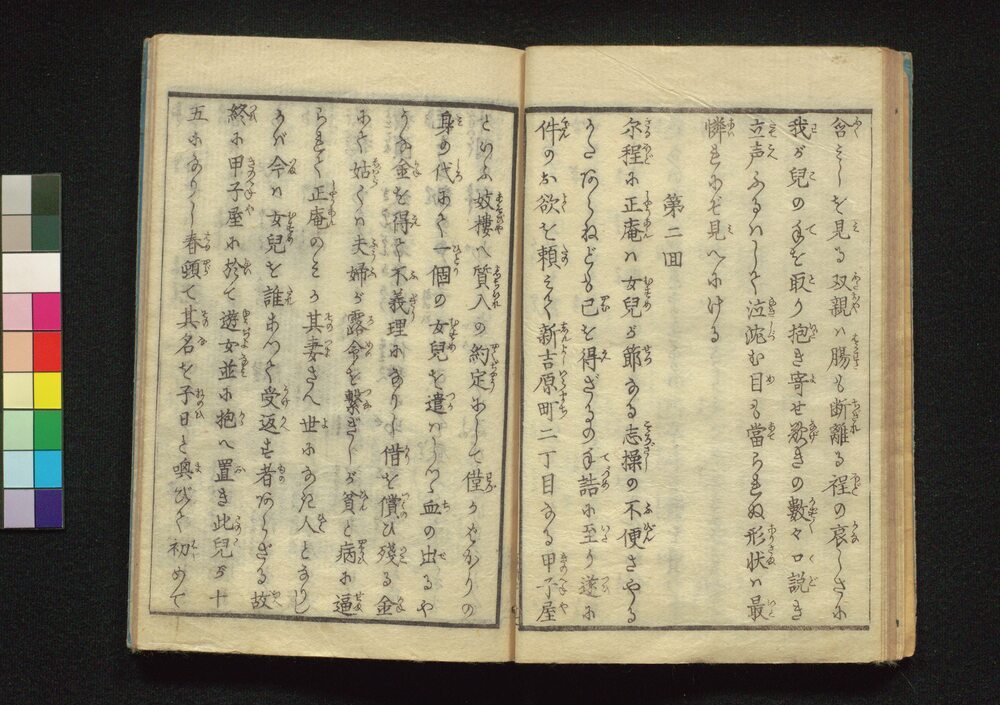 含ミしを見る双親ハ腸も断離る程の哀しさに
我が兒の手を取り抱き寄せ歎きの數々口説き
立声ふるハして泣沈む目も當られぬ形状ハ最
憐れにぞ見へにける
第二回
尓程に正庵ハ女兒が節なる志操の不便さやる
かたあらねども已を得ざるの手詰に至り遂に
件のお欲を頼ミて新吉原町二丁目なる甲子屋
といふ妓樓へ質入の約定にして僅かばかりの
身の代にて一個の女兒を遣ハしつゝ血の出るや
うな金を得て不義理になりし借を償ひ殘る金
にて姑くハ夫婦が露命を繋ぎしが貧と病に逼
られて正庵のミか其妻さへ世になき人となりし
かバ今ハ女兒を誰あつて受返す者あらざる故
終に甲子屋に於て遊女並に抱へ置き此兒が十
五になりし春頭て其名を子日と喚びて初めて